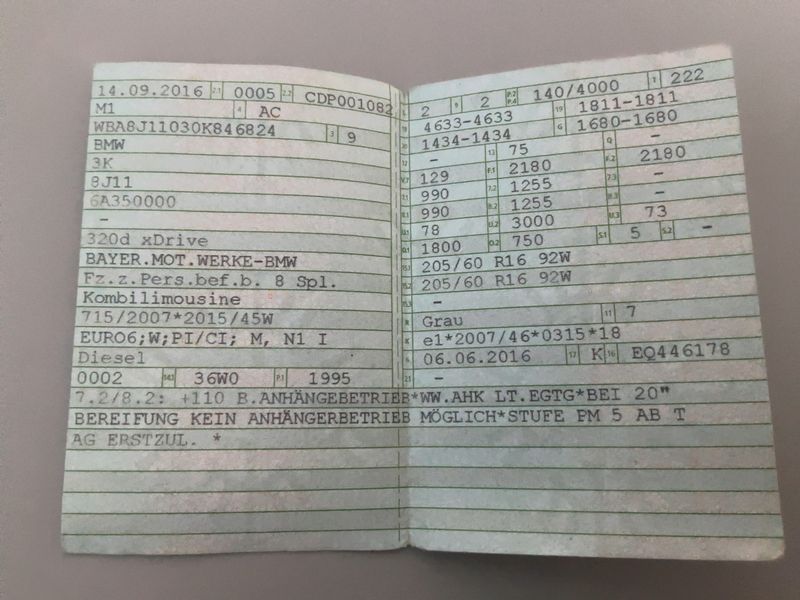 14.09.2016 2.1 0005 2.2 CDP001082
M1 4 AC
WBA8J11030K846824 3 9
BMW
3K
8J11
6A350000
–
320d xDrive
BAYER.MOT.WERKE-BMW
Fz.z.Pers.bef.b. 8 Spl.
Kombilimousine
715/2007*2015/45W
EURO6;W;PI/CI; M, N1 I
Diesel
0002 14.1 36W0 P.1 1995
L 2 9 2 P.2 P.4 140/4000 T 222
18 4633-4633 19 1811-1811
20 1434-1434 G 1680-1680
12 – 13 75 Q –
V.7 129 F.1 2180 F.2 2180
7.1 990 7.2 1255 7.3 –
8.1 990 8.2 1255 8.3 –
U.1 78 U.2 3000 U.3 73
O.1 1800 O.2 750 S.1 5 S.2 –
15.1 205/60 R16 92W
15.2 205/60 R16 92W
15.3 –
R Grau 11 7
K e1*2007/46*0315*18
6 06.06.2016 17 K 16 EQ446178
21 –
7.2/8.2: +110 B.ANHÄNGEBETRIEB*WW.AHK LT.EGTG*BEI 20"
BEREIFUNG KEIN ANHÄNGERBETRIEB MÖGLICH*STUFE PM 5 AB T
AG ERSTZUL. *